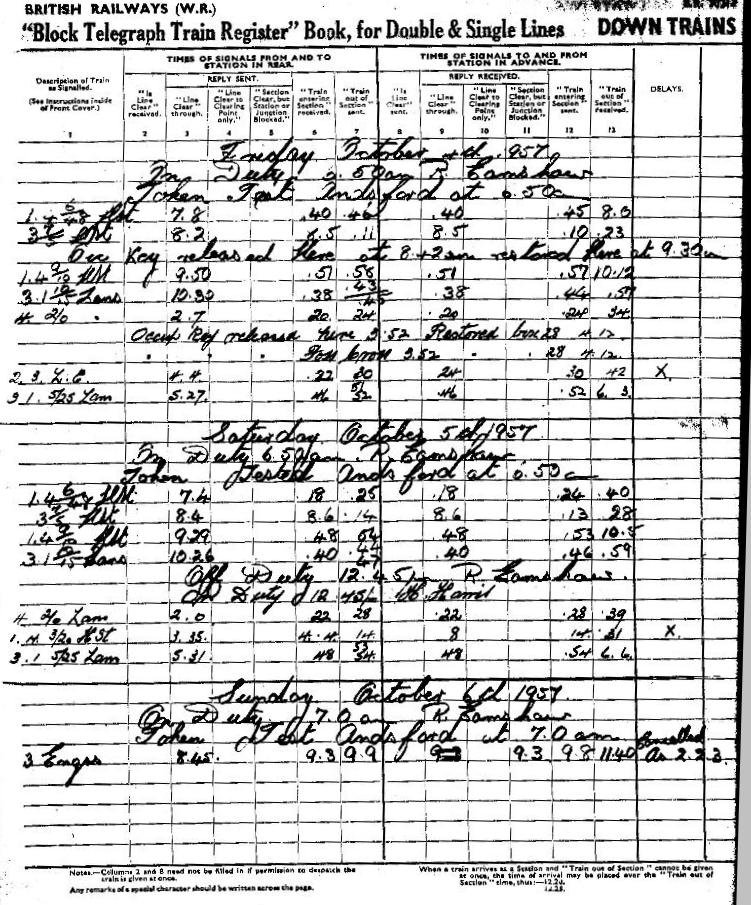 BRITISH RAILWAYS (W.R.)
"Block Telegraph Train Register" Book, for Double & Single Lines DOWN TRAINS
TIMES OF SIGNALS FROM AND TO STATION IN REAR. TIMES OF SIGNALS TO AND FROM STATION IN ADVANCE.
Description of Train as Signalled. (See Instructions inside of Front Cover.) REPLY SENT. REPLY RECEIVED. DELAYS.
"Is Line Clear" received. "Line Clear" through. "Line Clear to Clearing Point only." "Section Clear, but Station or Junction Blocked." "Train entering Section" received. "Train out of Section" sent. "Is Line Clear" sent. "Line Clear" through. "Line Clear to Clearing Point only." "Section Clear, but Station or Junction Blocked." "Train entering Section" sent. "Train out of Section" received.
1 2 3 4 5 6 7 8 9 10 11 12 13
Friday October 4th 1957
On Duty 6.50am R. Earnshaw
Token Test Andsford at 6.50a
1.4 6/48 Hst 7.8 .40 .46 .40 .45 8.0
3 7/5 Hst 8.2 8.5 .11 8.5 .10 .23
Occ Key released Here at 8.42am restored Here at 9.30am
1.4 9/10 Hst 9.50 .51 .56 .51 .57 10.12
3.1 10/15 Lans 10.30 .38 .43/.45 .38 .44 .57
4. 2/0 " 2.7 20 24 .20 .24 34
Occup Key released here 3.52 Restored box 28 4.12
3.52 28 4.12
2.3. L.E. 4.4 .22 30 24 30 42 X.
3 1. 5/25 Lam 5.27 46 51/52 46 .52 6.3.
Saturday October 5th 1957
On Duty 6.50am R. Earnshaw
Token Tested Andsford at 6.50a
1.4 6/48 Hst 7.4 18 .25 .18 .24 .40
3 7/5 Hst 8.4 8.6 .14 8.6 .13 28
1.4 9/10 Hst 9.29 48 54 48 .53 10.5
3.1 10/15 Lans 10.26 .40 .45/47 40 .46 .59
Off Duty 12.45pm R. Earnshaw.
On Duty 12.45pm Harris
4 2/0 Lam 2.0 22 28 .22 .28 .39
1.4. 3/20 H St 3.35. 4.4. 14 8 14 31 X.
3.1 5/25 Lam 5.31 48 53/54 48 .54 6.6.
Sunday October 6th 1957
On Duty 7.0am R. Earnshaw
Token Test Andsford at 7.0am Cancelled
3 Engs 8.45. 9.3 9.9 9.3 9.8 11.40 As 2.2.3.
Notes.—Columns 2 and 8 need not be filled in if permission to despatch the train is given at once.
Any remarks of a special character should be written across the page.
When a train arrives at a Station and "Train out of Section" cannot be given at once, the time of arrival may be placed over the "Train out of Section" time, thus:—12.24. 12.28.